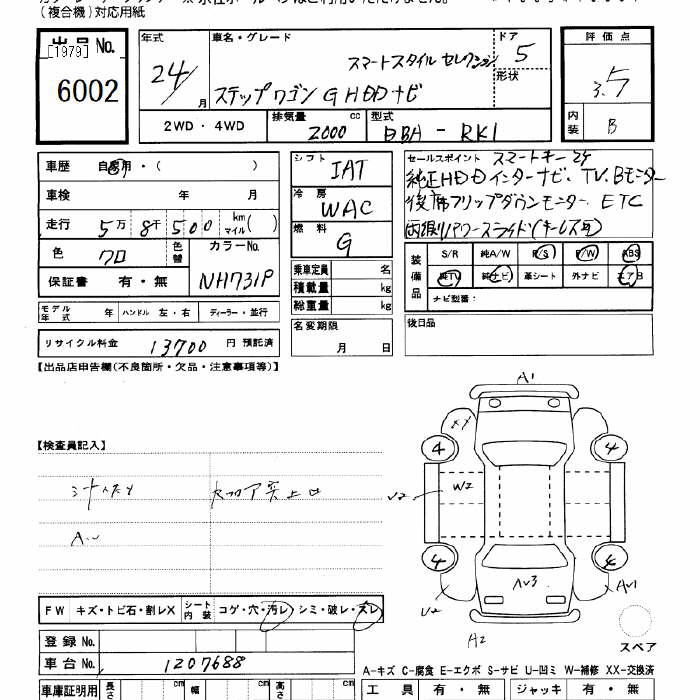 (複合機)対応用紙
出品 No.
[1979]
6002
年式
24/
月
車名・グレード
スマートスタイル セレクション
ステップワゴン G HDDナビ
ドア
5
形状
評価点
3.5
内装
B
2WD・4WD
排気量
2000
cc
型式
DBA - RK1
車歴 自家用・( )
車検 年 月
走行 5万 8千 500 km マイル( )
色 クロ
色替
カラーNo.
NH731P
保証書 有・無
シフト
IAT
冷房
WAC
燃料
G
乗車定員 名
積載量 kg
総重量 kg
名変期限
月 日
セールスポイント スマートキー2ケ
純正HDDインターナビ、TV、Bモニター
後席フリップダウンモニター ETC
両側パワースライド(キーレス付)
装備品
S/R 純A/W R/S P/W ABS
純TV 純ナビ 革シート 外ナビ エアB
ナビ型番:
後日品
モデル年式 年 ハンドル 左・右 ディーラー・並行
リサイクル料金 13700 円 預託済
【出品店申告欄(不良箇所・欠品・注意事項等)】
【検査員記入】
A1
XX
4
4
W2
U2
4
4
AU3
AU1
U2
A2
スペア
FW キズ・トビ石・割レX シート内装 コゲ・穴・汚レ シミ・破レ・スレ
登録 No.
車台 No. 1207688
A-キズ C-腐食 E-エクボ S-サビ U-凹ミ W-補修 XX-交換済
車庫証明用 長さ cm 幅 cm 高さ cm
工具 有・無 ジャッキ 有・無